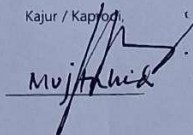 Kajur / Kaprodi,
Mujtahid